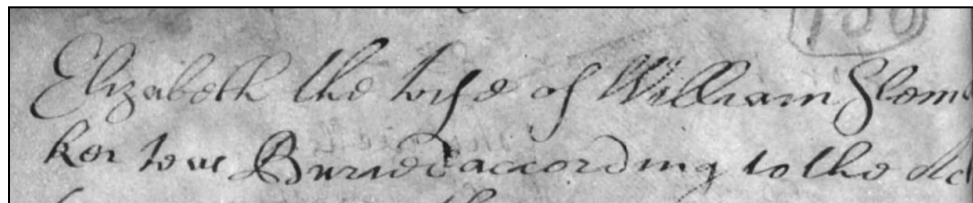 130
Elizabeth the wife of William Flem
ker towe Buried according to the Act